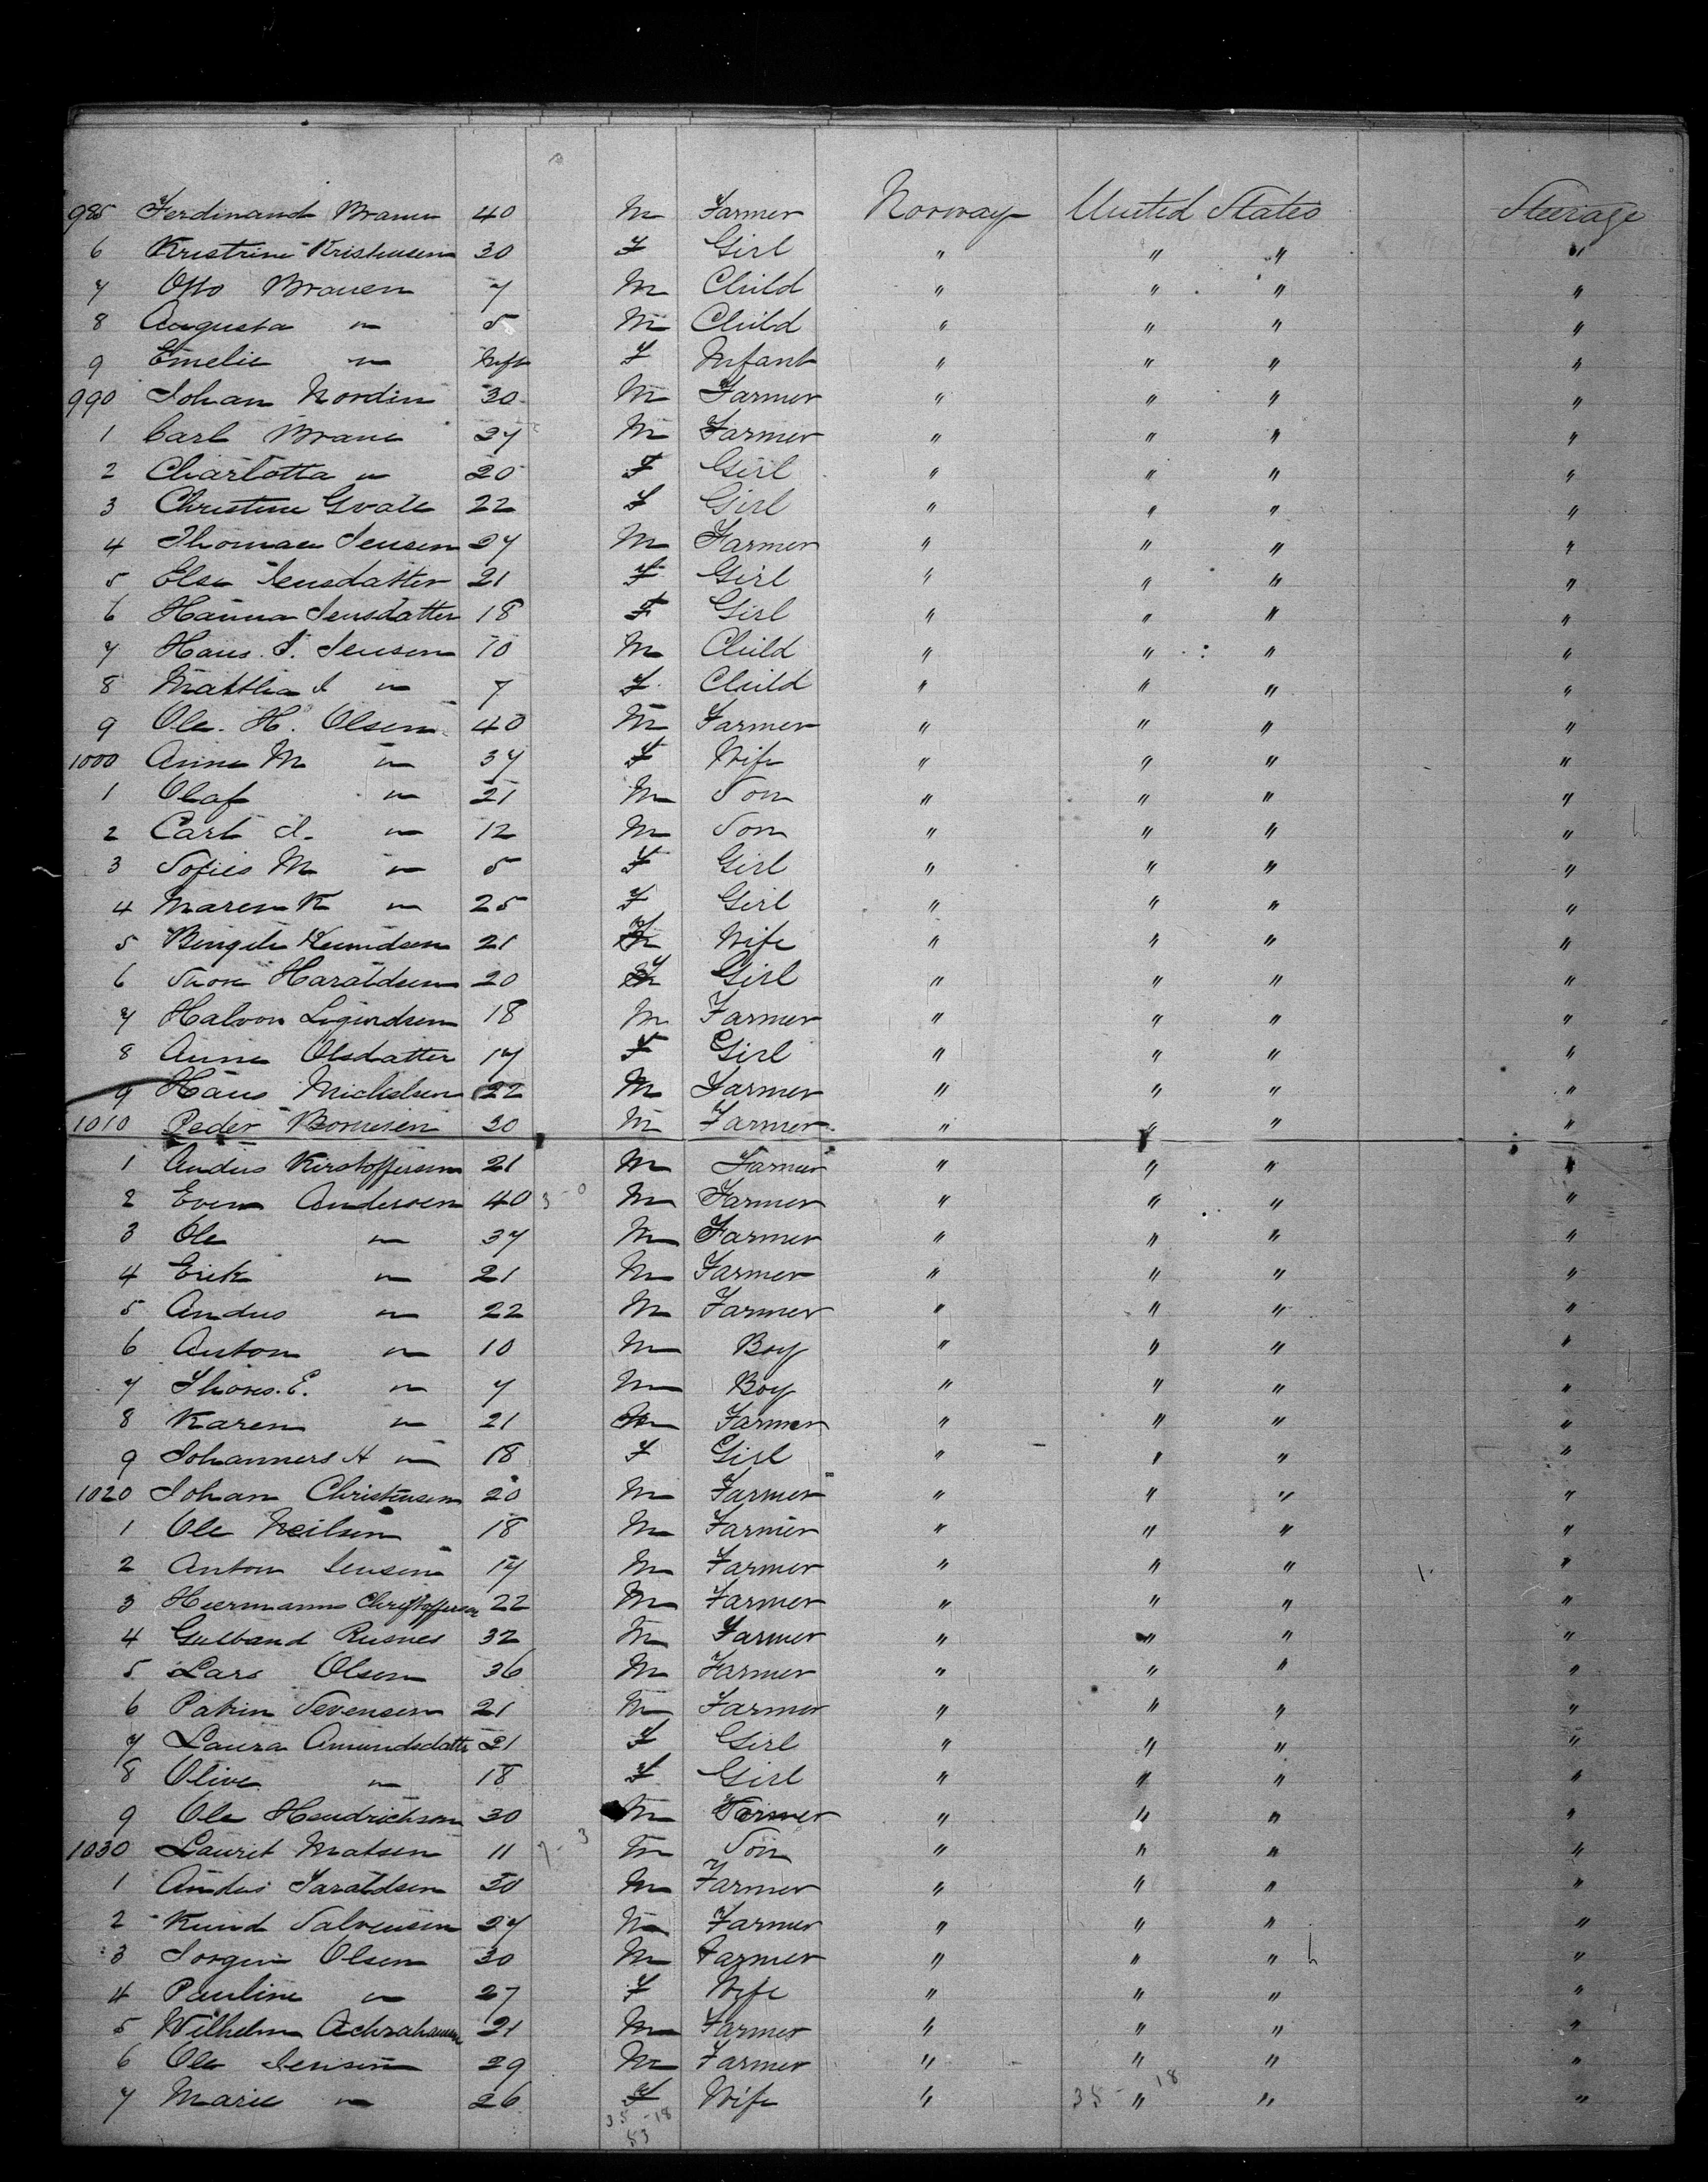 985 Ferdinand Brauer 40 M Farmer Norway United States Steerage
6 Kristrine Kristensen 30 F Girl " " " "
7 Otto Brauen 7 M Child " " " "
8 Augusta " 5 M Child " " " "
9 Emelie " Inft F Infant " " " "
990 Johan Nordin 30 M Farmer " " " "
1 Carl 27 M Farmer " " " "
2 Charlotta " 20 F Girl " " " "
3 Christine 22 F Girl " " " "
4 Thomas Jensen 27 M Farmer " " " "
5 Else Jensdatter 21 F Girl " " " "
6 Hanna Jensdatter 18 F Girl " " " "
7 Hans J. Jensen 10 M Child " " " "
8 Matthia J " 7 F Child " " " "
9 Ole. H. Olsen 40 M Farmer " " " "
1000 Anne M " 37 F Wife " " " "
1 Olaf " 21 M Son " " " "
2 Carl J. " 12 M Son " " " "
3 Sofies M " 5 F Girl " " " "
4 Maren K " 25 F Girl " " " "
5 Knudsen 21 F Wife " " " "
6 Haraldsen 20 F Girl " " " "
7 Halvor Sigurdsen 18 M Farmer " " " "
8 Anne Olsdatter 17 F Girl " " " "
9 Hans Michelsen 22 M Farmer " " " "
1010 Peder 20 M Farmer " " " "
1 Andus Kirstoffersen 21 M Farmer " " " "
2 Even Andersen 40 3-0 M Farmer " " " "
3 Ole " 37 M Farmer " " " "
4 Erik " 21 M Farmer " " " "
5 Andus " 22 M Farmer " " " "
6 Anton " 10 M Boy " " " "
7 Thores. E. " 7 M Boy " " " "
8 Karen " 21 M Farmer " " " "
9 Johanners A " 18 F Girl " " " "
1020 Johan Christensen 20 M Farmer " " " "
1 Ole Neilsen 18 M Farmer " " " "
2 Anton Jensen 17 M Farmer " " " "
3 Heermann Christoffersen 22 M Farmer " " " "
4 Gulband Rusnes 32 M Farmer " " " "
5 Lars Olsen 36 M Farmer " " " "
6 Sevensen 21 M Farmer " " " "
7 Laura Amundsdatte 21 F Girl " " " "
8 Olive " 18 F Girl " " " "
9 Ole Hendrichson 30 M Farmer " " " "
1030 Laurit Matsen 11 7-3 M Son " " " "
1 Andus Taraldsen 30 M Farmer " " " "
2 Knud Salvensen 27 M Farmer " " " "
3 Jorgen Olsen 30 M Farmer " " " "
4 Pauline " 27 F Wife " " " "
5 Wilhelm 21 M Farmer " " " "
6 Ole Jensen 29 M Farmer " " " "
7 Marie " 26 F Wife " 35-18 " " "
35-18
53